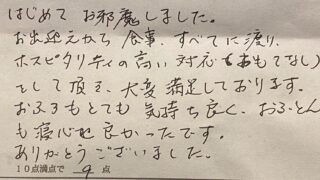 はじめて お邪魔しました。
お出迎えから 食事、すべてに渡り、
ホスピタリティの高い 対応(おもてなし)
をして頂き、大変 満足しております。
おふろもとても 気持ち良く、おふとん
も寝心地 良かったです。
ありがとうございました。
10点満点で 9 点